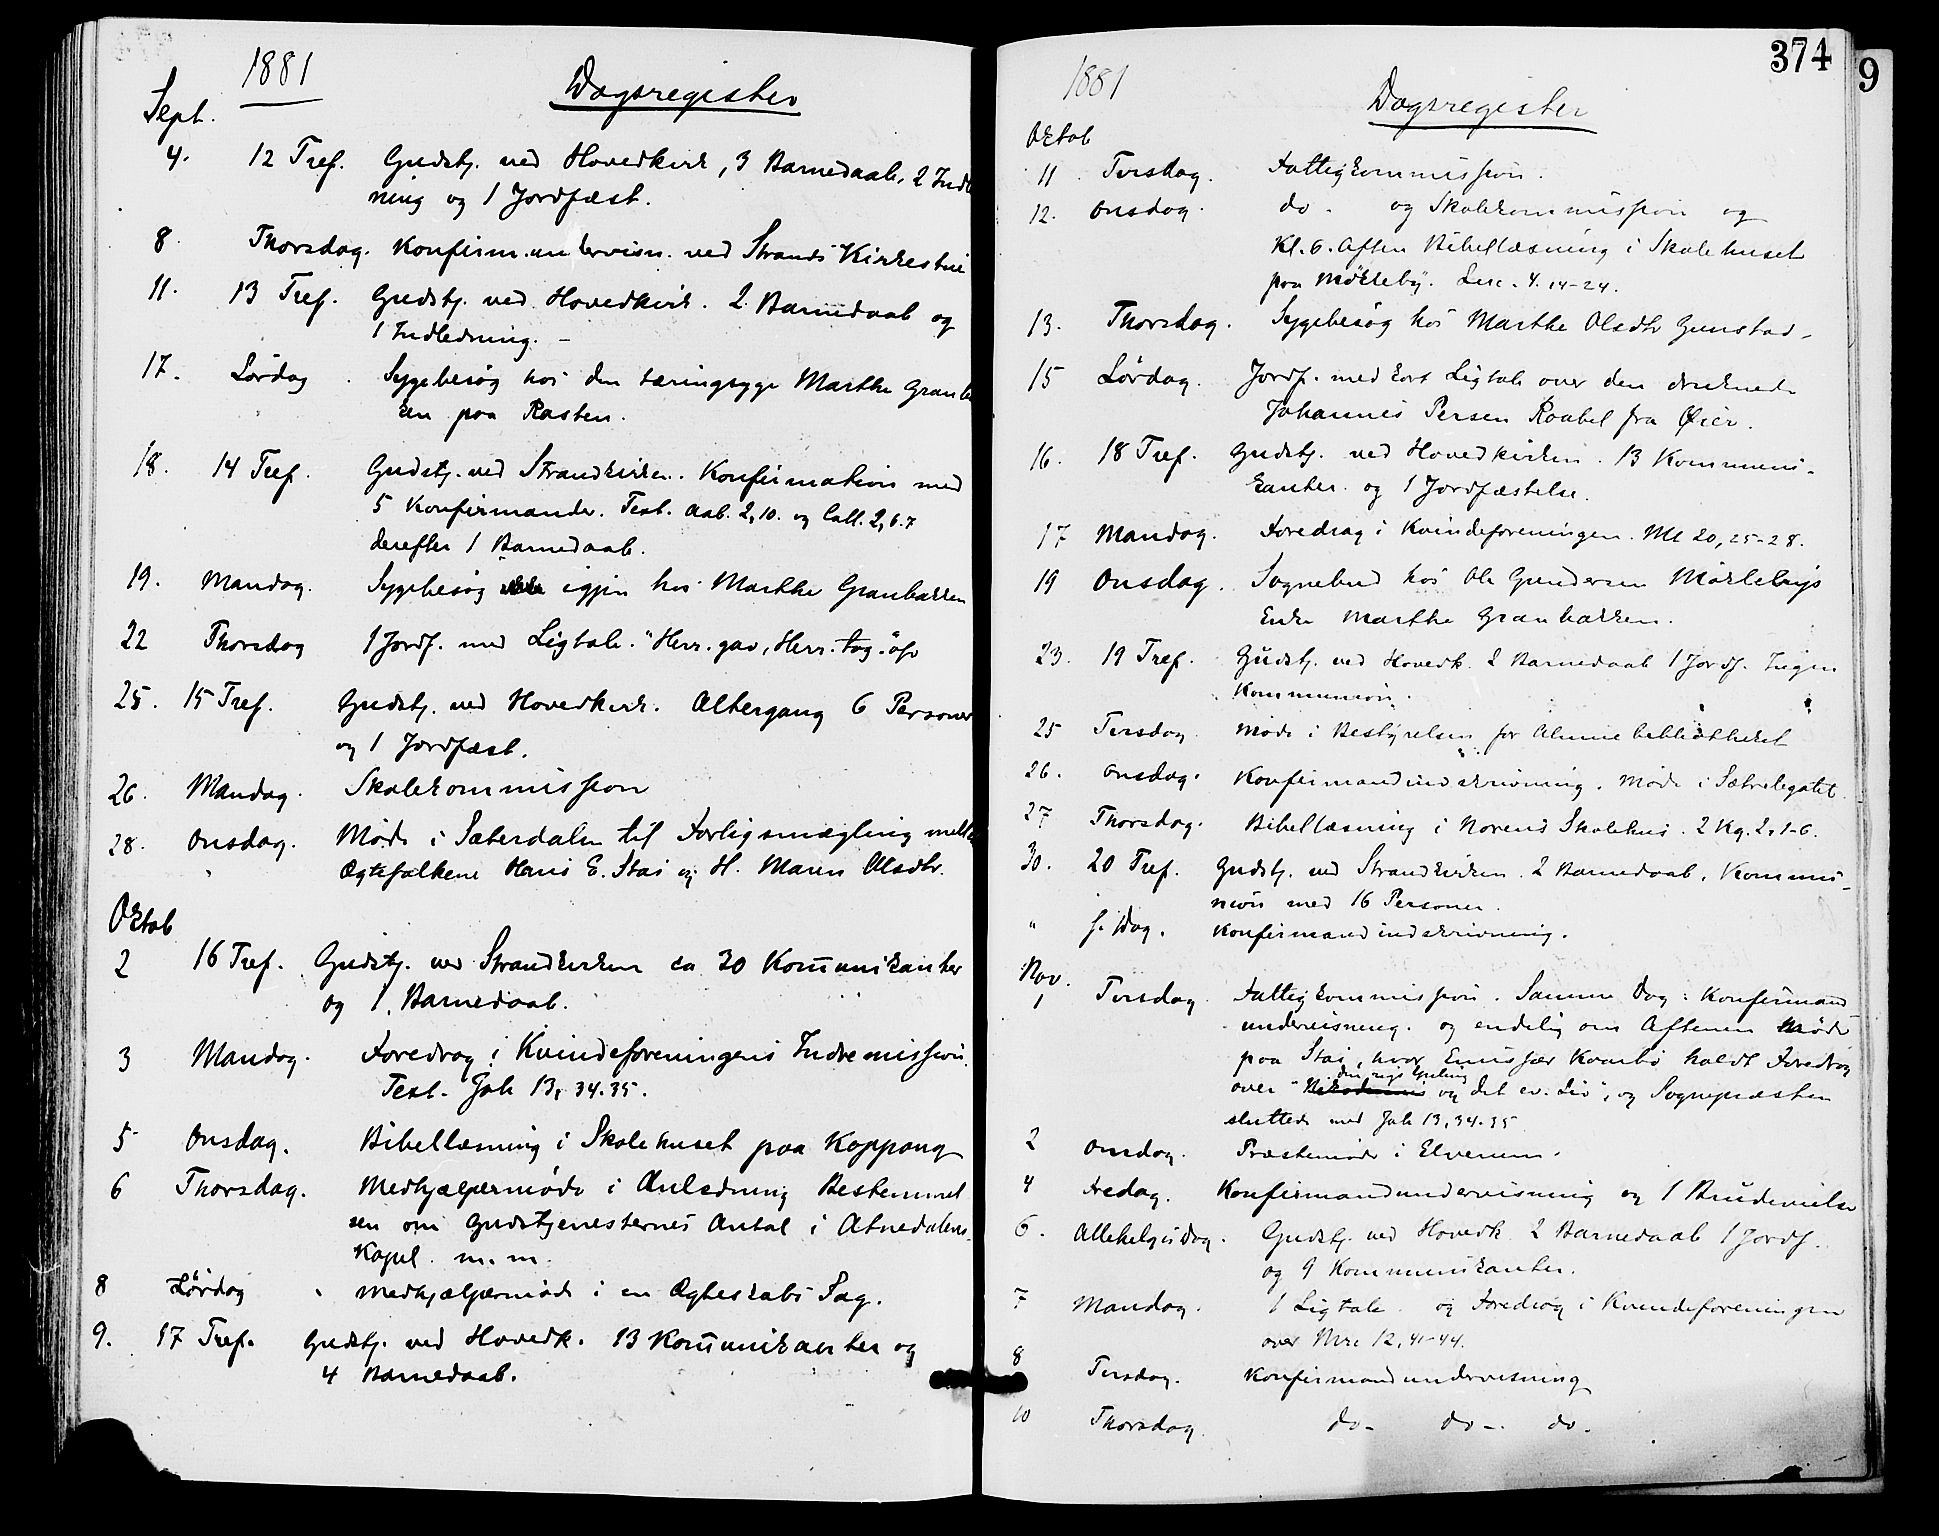 1881
Dagsregister
Sept.
4. 12 Tref. Gudstj. ved Hovedkirk, 3 Barnedaab. 2 Indl
ning og 1 Jordfæst.
8. Thorsdag. Konfirm.undervisn. ved Strands Kirkestue
11. 13 Tref. Gudstj. ved Hovedkirk. 2 Barnedaab og
1 Indledning. –
17. Lørdag. Sygebesøg hos den tæringsyge Marthe Granba
ken paa Rasten.
18. 14 Tref. Gudstj. ved Strandkirken. Konfirmation med
5 Konfirmander. Text. Aab. 2,10. og Coll. 2,6.7
derefter 1 Barnedaab.
19. Mandag. Sygebesøg igjen hos Marthe Granbakken
22 Thorsdag 1 Jordf. med Ligtale. "Herr. gav, Herr. tog." osv
25. 15 Tref. Gudstj. ved Hovedkirk. Altergang 6 Personer
og 1 Jordfæst.
26. Mandag. Skolekommission
28. Onsdag. Møde i Sæterdalen til Forligsmægling mell
Ægtefolkene Hans E. Stai og H. Maren Olsdtr.
Oktob
2 16 Tref. Gudstj. ved Strandkirken ca 30 Kom̅unikanter
og 1 Barnedaab.
3 Mandag. Foredrag i Kvindeforeningens Indremission.
Text. Joh 13, 34.35.
5 Onsdag. Bibellæsning i Skolehuset paa Koppang
6 Thorsdag. Medhjælpermøde i Anledning Bestemmel
sen om Gudstjenesternes Antal i Atnedalens
Kapel. m.m.
8 Lørdag " Medhjælpermøde i en Ægteskabs Sag.
9. 17 Tref. Gudstj. ved Hovedk. 13 Kom̅unikanter og
4 Barnedaab.
374
9
1881
Dagsregister
Oktob
11. Tirsdag. Fattigkommission.
12. Onsdag. do. og Skolekommission og
Kl. 6. Aften Bibellæsning i Skolehuset
paa Møkleby. Luc. 4. 14–24.
13. Thorsdag. Sygebesøg hos Marthe Olsdtr Gunstad.
15 Lørdag. Jordf. med kort Ligtale over den druknede
Johannes Persen Raabel fra Øier.
16. 18 Tref. Gudstj. ved Hovedkirken. 13 Kommuni-
kanter. og 1 Jordfæstelse.
17 Mandag. Foredrag i Kvindeforeningen. Mt 20, 25–28.
19 Onsdag. Sognebud hos Ole Gundersen Møklebys
Enke Marthe Granbakken.
23. 19 Tref. Gudstj. ved Hovedk. 2 Barnedaab 1 Jordf. Ingen
Kommunion.
25 Tirsdag Møde i Bestyrelsen for Almuebibliotheket
26. Onsdag. Konfirmandindskrivning. Møde i Sætrelegatet.
27 Thorsdag. Bibellæsning i Norend Skolehus. 2 Kg. 2, 1–6.
30. 20 Tref. Gudstj. ved Strandkirken. 2 Barnedaab. Kommu-
nion med 16 Personer.
" s. Dag. Konfirmandindskrivning.
Nov.
1 Tirsdag. Fattigkommission. Samme Dag: Konfirmand
undervisning. og endelig om Aftenen Møde
paa Stai, hvor Emissær Kvambo holdt Foredrag
over " og det ev. Liv", og Sognepræsten
sluttede med Joh 13, 34.35
2 Onsdag. Præstemøde i Elverum.
4 Fredag. Konfirmandundervisning og 1 Brudevielse
6. Allehelgensdag. Gudstj. ved Hovedk. 2 Barnedaab 1 Jordf.
og 9 Kommunikanter.
7 Mandag. 1 Ligtale. og Foredrag i Kvindeforeningen
over Mrc 12, 41–44.
8 Tirsdag. Konfirmandundervisning
10 Thorsdag. do– do–. do.